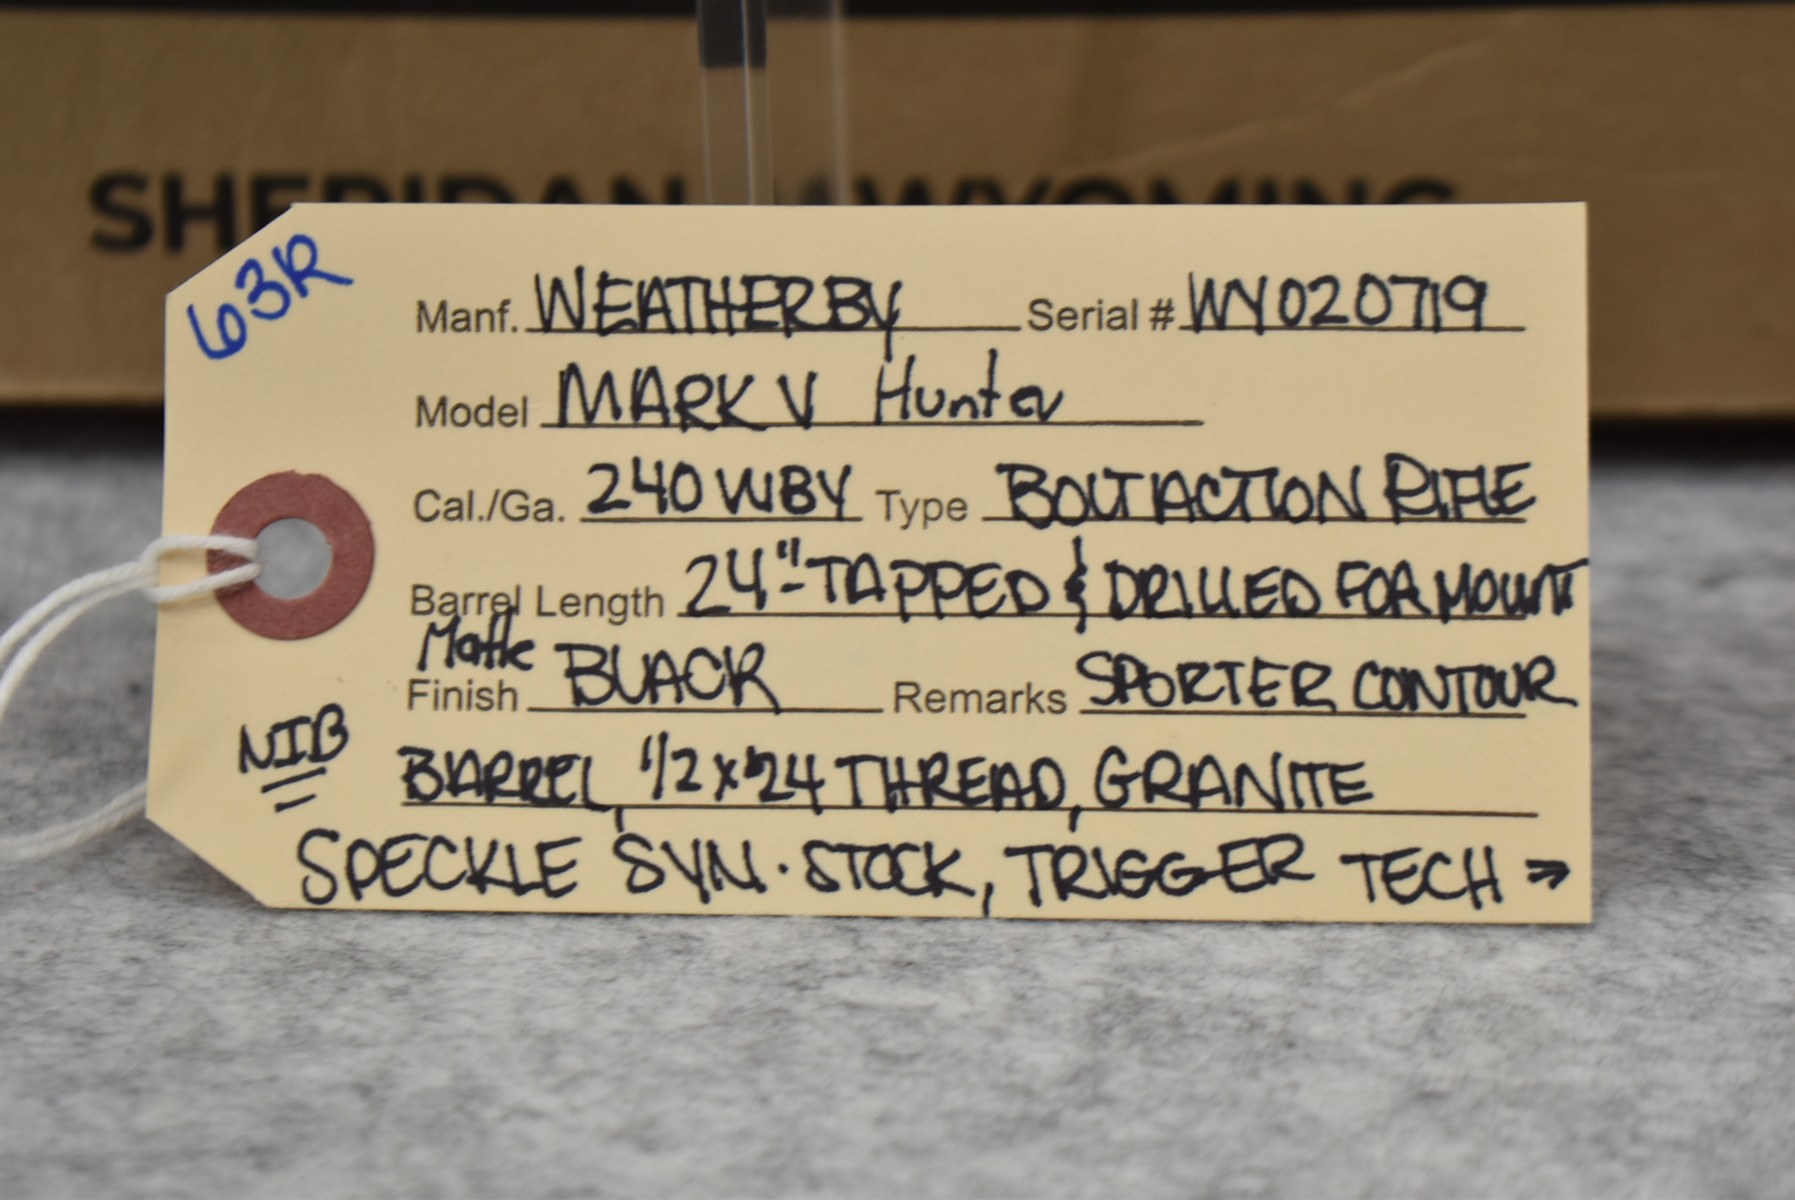 SHERIDAN WYOMING
63R
Manf. WEATHERBY Serial # WY020719
Model MARK V Hunter
Cal./Ga. 240 WBY Type BOLT ACTION RIFLE
Barrel Length 24"-TAPPED & DRILLED FOR MOUNT
Matte
Finish BLACK Remarks SPORTER CONTOUR
NIB
BARREL, 1/2x24 THREAD, GRANITE
SPECKLE SYN. STOCK, TRIGGER TECH →